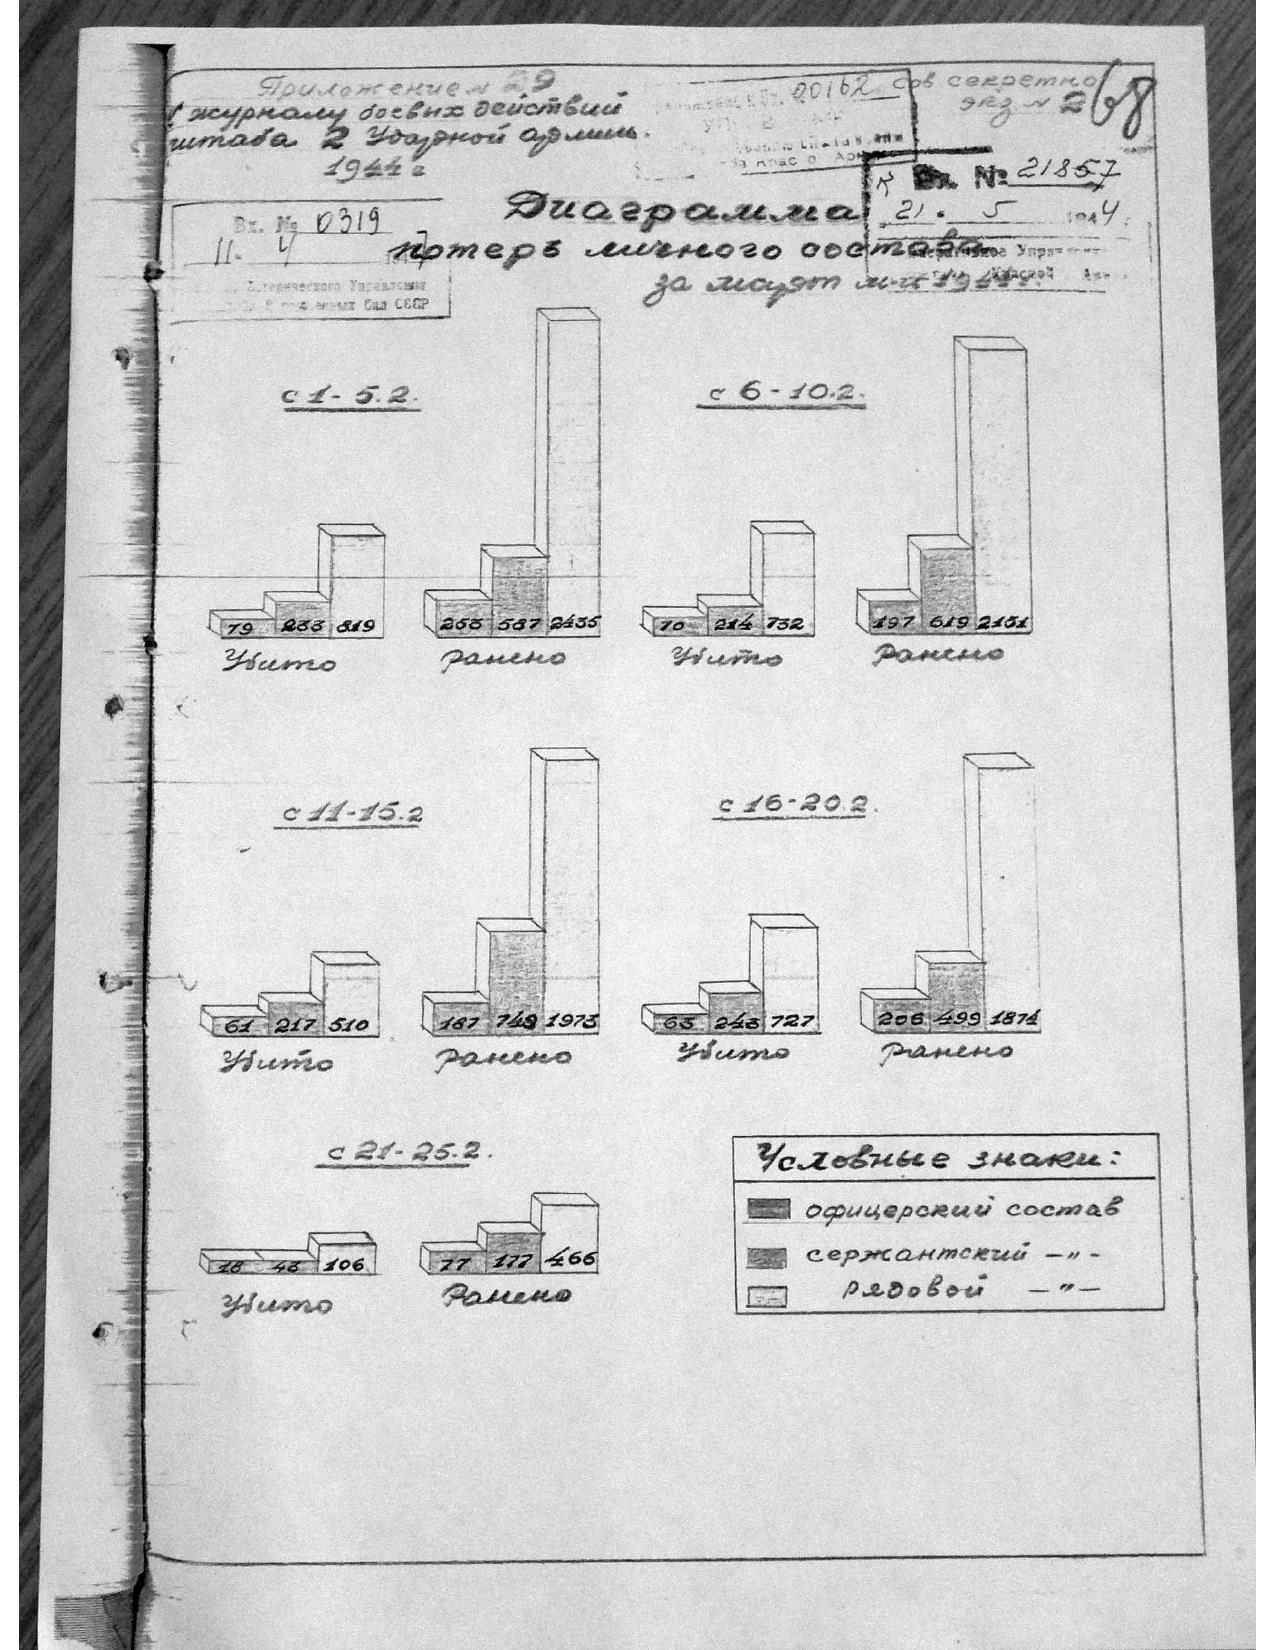 Приложение № 29
к журналу боевых действий
штаба 2 Ударной армии.
1944 г
00162
Сов секретно
экз № 2
68
Вх. № 21857
21. 5 1944.
Вх. № 0319
11. 4
Исторического Управления
Сил СССР
Диаграмма
потерь личного состава
за
1944 г.
с 1-5.2.
с 6-10.2.
79 233 819
253 587 2435
70 214 732
197 619 2151
Убито
Ранено
Убито
Ранено
с 11-15.2
с 16-20.2.
61 217 510
187 749 1973
63 243 727
206 499 1874
Убито
Ранено
Убито
Ранено
с 21-25.2.
18 43 106
77 177 466
Убито
Ранено
Условные знаки:
офицерский состав
сержантский —〃—
рядовой —〃—